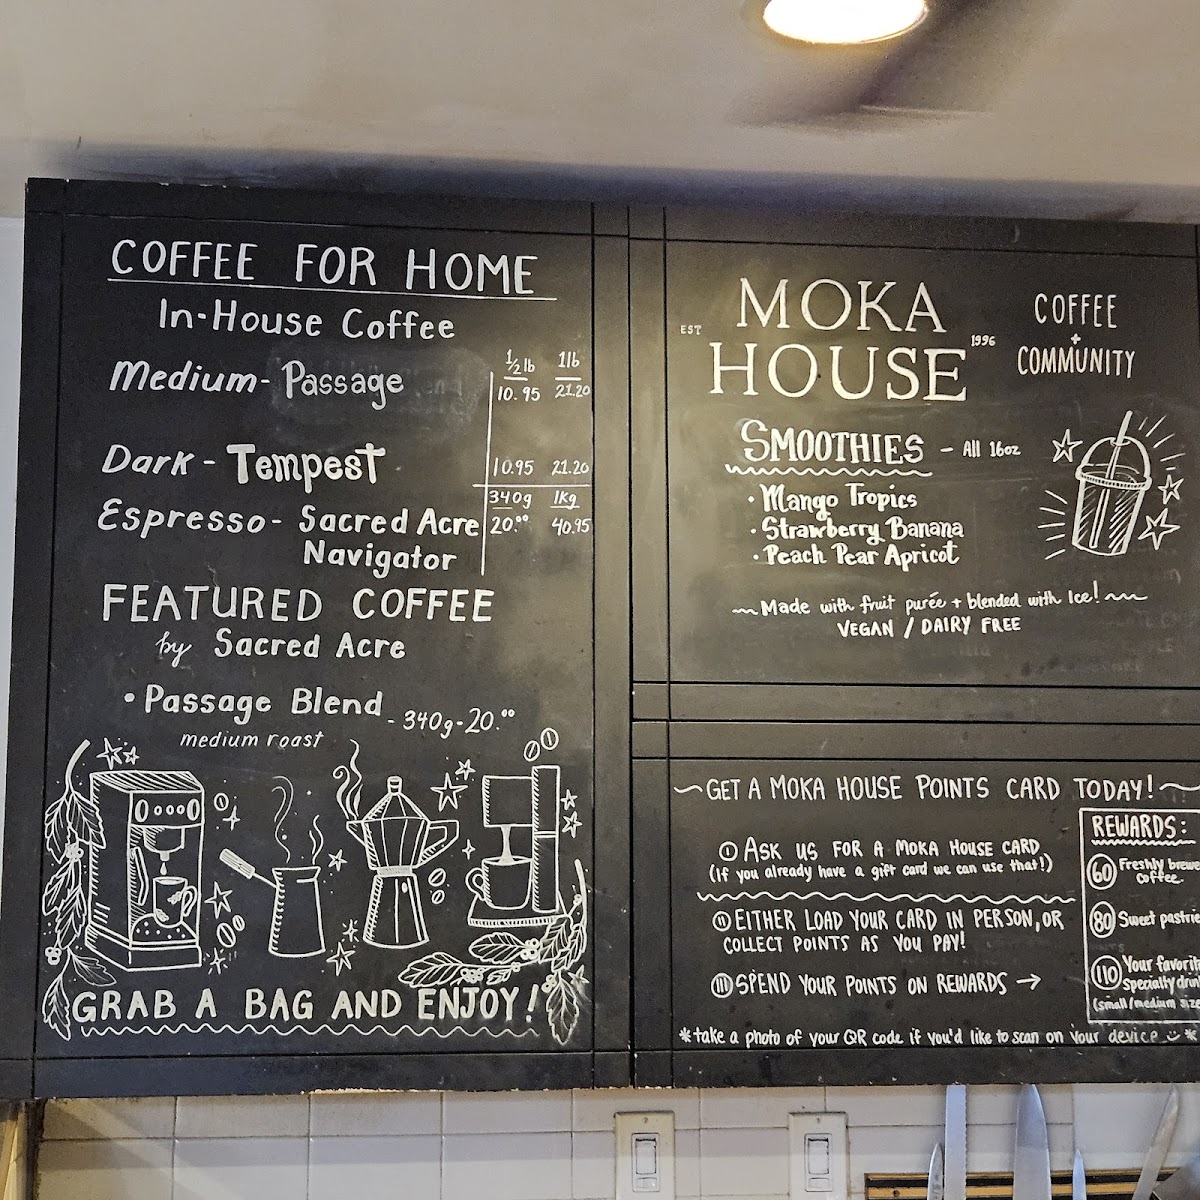 COFFEE FOR HOME
In-House Coffee
1/2 lb 1lb
Medium - Passage 10.95 21.20
Dark - Tempest 10.95 21.20
340g 1Kg
Espresso - Sacred Acre 20.00 40.95
Navigator
FEATURED COFFEE
by Sacred Acre
• Passage Blend - 340g - 20.00
medium roast
GRAB A BAG AND ENJOY!
EST MOKA HOUSE 1996
COFFEE
+
COMMUNITY
SMOOTHIES - All 16oz
• Mango Tropics
• Strawberry Banana
• Peach Pear Apricot
~Made with fruit purée + blended with Ice!~
VEGAN / DAIRY FREE
~GET A MOKA HOUSE POINTS CARD TODAY!~
(I) ASK US FOR A MOKA HOUSE CARD
(If you already have a gift card we can use that!)
(II) EITHER LOAD YOUR CARD IN PERSON, OR
COLLECT POINTS AS YOU PAY!
(III) SPEND YOUR POINTS ON REWARDS →
REWARDS:
60 Freshly brewe
coffee.
80 Sweet pastrie
110 Your favorit
specialty drin
(small/medium size
*take a photo of your QR code if you'd like to scan on your device ☺*